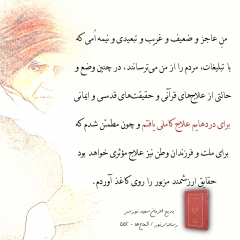 من عاجز و ضعیف و غریب و تبعیدی و نیمه اُمی که
با تبلیغات، مردم را از من می‌ترسانند، در چنین وضع و
حالتی از علاج‌های قرآنی و حقیقت‌های قدسی و ایمانی
برای دردهایم علاج کاملی یافتم و چون مطمئن شدم که
برای ملت و فرزندان وطن نیز علاج مؤثری خواهد بود
حقایق ارزشمند مزبور را روی کاغذ آوردم.
بدیع الزمان سعید نورسی